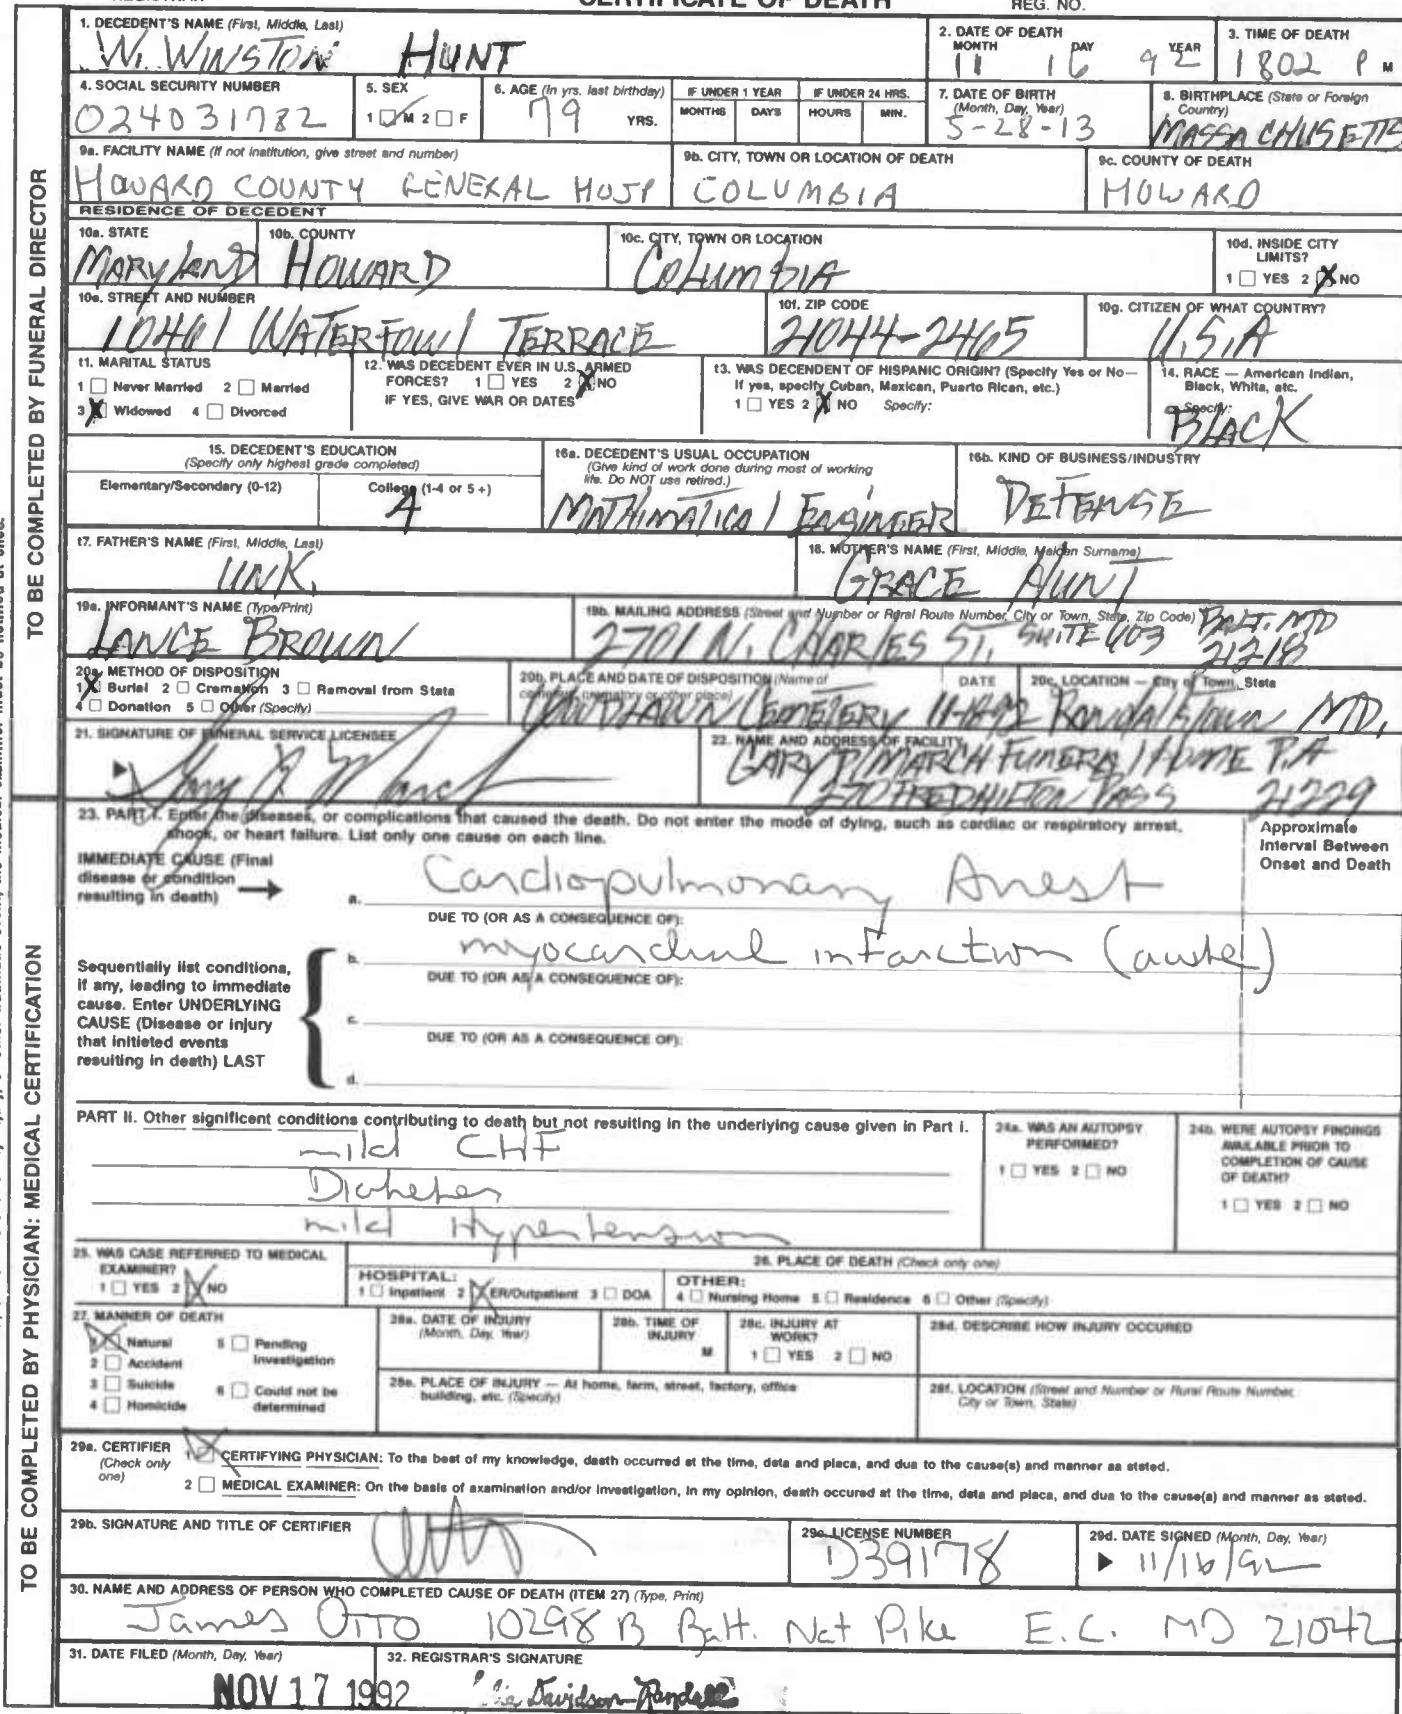 CERTIFICATE OF DEATH
REG. NO.
TO BE COMPLETED BY FUNERAL DIRECTOR
1. DECEDENT'S NAME (First, Middle, Last)
W. WINSTON HUNT
2. DATE OF DEATH
MONTH DAY YEAR
11 16 92
3. TIME OF DEATH
1802 P M
4. SOCIAL SECURITY NUMBER
024031782
5. SEX
1 M 2 F
6. AGE (In yrs. last birthday)
79 YRS.
IF UNDER 1 YEAR
MONTHS DAYS
IF UNDER 24 HRS.
HOURS MIN.
7. DATE OF BIRTH
(Month, Day, Year)
5-28-13
8. BIRTHPLACE (State or Foreign
Country)
MASSACHUSETTS
9a. FACILITY NAME (If not institution, give street and number)
HOWARD COUNTY GENERAL HOSP
9b. CITY, TOWN OR LOCATION OF DEATH
COLUMBIA
9c. COUNTY OF DEATH
HOWARD
RESIDENCE OF DECEDENT
10a. STATE
MARYLAND
10b. COUNTY
HOWARD
10c. CITY, TOWN OR LOCATION
COLUMBIA
10d. INSIDE CITY
LIMITS?
1 YES 2 X NO
10e. STREET AND NUMBER
10461 WATERFOWL TERRACE
10f. ZIP CODE
21044-2465
10g. CITIZEN OF WHAT COUNTRY?
U.S.A
11. MARITAL STATUS
1 Never Married 2 Married
3 X Widowed 4 Divorced
12. WAS DECEDENT EVER IN U.S. ARMED
FORCES? 1 YES 2 X NO
IF YES, GIVE WAR OR DATES
13. WAS DECENDENT OF HISPANIC ORIGIN? (Specify Yes or No—
If yes, specify Cuban, Mexican, Puerto Rican, etc.)
1 YES 2 X NO Specify:
14. RACE — American Indian,
Black, White, etc.
Specify:
BLACK
15. DECEDENT'S EDUCATION
(Specify only highest grade completed)
Elementary/Secondary (0-12)
College (1-4 or 5+)
4
16a. DECEDENT'S USUAL OCCUPATION
(Give kind of work done during most of working
life. Do NOT use retired.)
MATHIMATICAL ENGINEER
16b. KIND OF BUSINESS/INDUSTRY
DEFENSE
17. FATHER'S NAME (First, Middle, Last)
UNK.
18. MOTHER'S NAME (First, Middle, Maiden Surname)
GRACE HUNT
19a. INFORMANT'S NAME (Type/Print)
LANCE BROWN
19b. MAILING ADDRESS (Street and Number or Rural Route Number, City or Town, State, Zip Code)
2701 N. CHARLES ST, SUITE 603 BALT. MD
21218
20a. METHOD OF DISPOSITION
1 X Burial 2 Cremation 3 Removal from State
4 Donation 5 Other (Specify)
20b. PLACE AND DATE OF DISPOSITION (Name of
cemetery, crematory or other place)
DATE
CEMETERY
20c. LOCATION — City or Town, State
Randallstown MD.
21. SIGNATURE OF FUNERAL SERVICE LICENSEE
Gary P. March
22. NAME AND ADDRESS OF FACILITY
GARY P. MARCH FUNERAL HOME P.A
270 FREDHILTON PASS 21229
TO BE COMPLETED BY PHYSICIAN: MEDICAL CERTIFICATION
23. PART I. Enter the diseases, or complications that caused the death. Do not enter the mode of dying, such as cardiac or respiratory arrest,
shock, or heart failure. List only one cause on each line.
Approximate
Interval Between
Onset and Death
IMMEDIATE CAUSE (Final
disease or condition
resulting in death)
a. Cardiopulmonary Arrest
DUE TO (OR AS A CONSEQUENCE OF):
b. myocardial infarction (acute)
DUE TO (OR AS A CONSEQUENCE OF):
c.
DUE TO (OR AS A CONSEQUENCE OF):
d.
Sequentially list conditions,
if any, leading to immediate
cause. Enter UNDERLYING
CAUSE (Disease or injury
that initiated events
resulting in death) LAST
PART II. Other significant conditions contributing to death but not resulting in the underlying cause given in Part I.
mild CHF
Diabetes
mild Hypertension
24a. WAS AN AUTOPSY
PERFORMED?
1 YES 2 NO
24b. WERE AUTOPSY FINDINGS
AVAILABLE PRIOR TO
COMPLETION OF CAUSE
OF DEATH?
1 YES 2 NO
25. WAS CASE REFERRED TO MEDICAL
EXAMINER?
1 YES 2 X NO
26. PLACE OF DEATH (Check only one)
HOSPITAL:
1 Inpatient 2 X ER/Outpatient 3 DOA
OTHER:
4 Nursing Home 5 Residence 6 Other (Specify)
27. MANNER OF DEATH
1 X Natural 5 Pending
Investigation
2 Accident
3 Suicide 6 Could not be
determined
4 Homicide
28a. DATE OF INJURY
(Month, Day, Year)
28b. TIME OF
INJURY
M
28c. INJURY AT
WORK?
1 YES 2 NO
28d. DESCRIBE HOW INJURY OCCURED
28e. PLACE OF INJURY — At home, farm, street, factory, office
building, etc. (Specify)
28f. LOCATION (Street and Number or Rural Route Number,
City or Town, State)
29a. CERTIFIER
(Check only
one)
1 X CERTIFYING PHYSICIAN: To the best of my knowledge, death occurred at the time, date and place, and due to the cause(s) and manner as stated.
2 MEDICAL EXAMINER: On the basis of examination and/or investigation, in my opinion, death occured at the time, date and place, and due to the cause(s) and manner as stated.
29b. SIGNATURE AND TITLE OF CERTIFIER
29c. LICENSE NUMBER
D39178
29d. DATE SIGNED (Month, Day, Year)
11/16/92
30. NAME AND ADDRESS OF PERSON WHO COMPLETED CAUSE OF DEATH (ITEM 27) (Type, Print)
James Otto 10298 B Balt. Nat Pike E.C. MD 21042
31. DATE FILED (Month, Day, Year)
NOV 17 1992
32. REGISTRAR'S SIGNATURE
Davidson-Randall